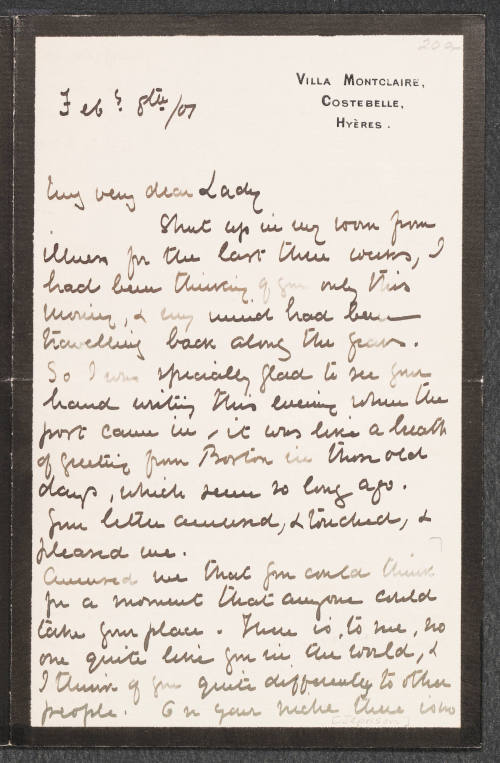 202
VILLA MONTCLAIRE,
COSTEBELLE,
HYÈRES.
Feby. 8th/01
My very dear Lady
Shut up in my room from
illness for the last three weeks, I
had been thinking of you only this
morning, & my mind had been
travelling back along the years.
So I was specially glad to see your
hand writing this evening when the
post came in, it was like a breath
of greeting from Boston in those old
days, which seem so long ago.
Your letter amused, & touched, &
pleased me.
Amused me that you could think
for a moment that anyone could
take your place. There is, to me, no
one quite like you in the world, &
I think of you quite differently to other
people. On your niche there is no